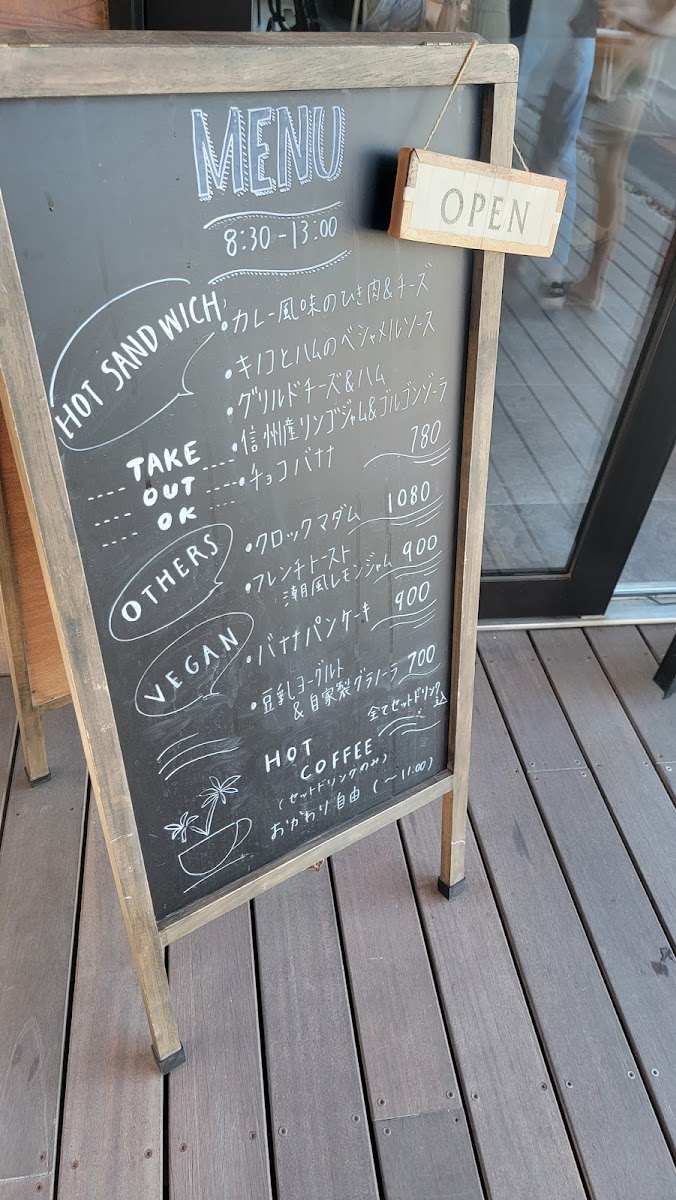 MENU
OPEN
8:30-13:00
HOT SANDWICH
・カレー風味のひき肉&チーズ
・キノコとハムのベシャメルソース
・グリルドチーズ&ハム
・信州産リンゴジャム&ゴルゴンゾーラ
・チョコバナナ 780
TAKE
OUT
OK
OTHERS
・クロックマダム 1080
・フレンチトースト
潮風レモンジャム 900
VEGAN
・バナナパンケーキ 900
・豆乳ヨーグルト
&自家製グラノーラ 700
全てセットドリンク
HOT
COFFEE
(セットドリンクのみ)
おかわり自由 (〜11:00)